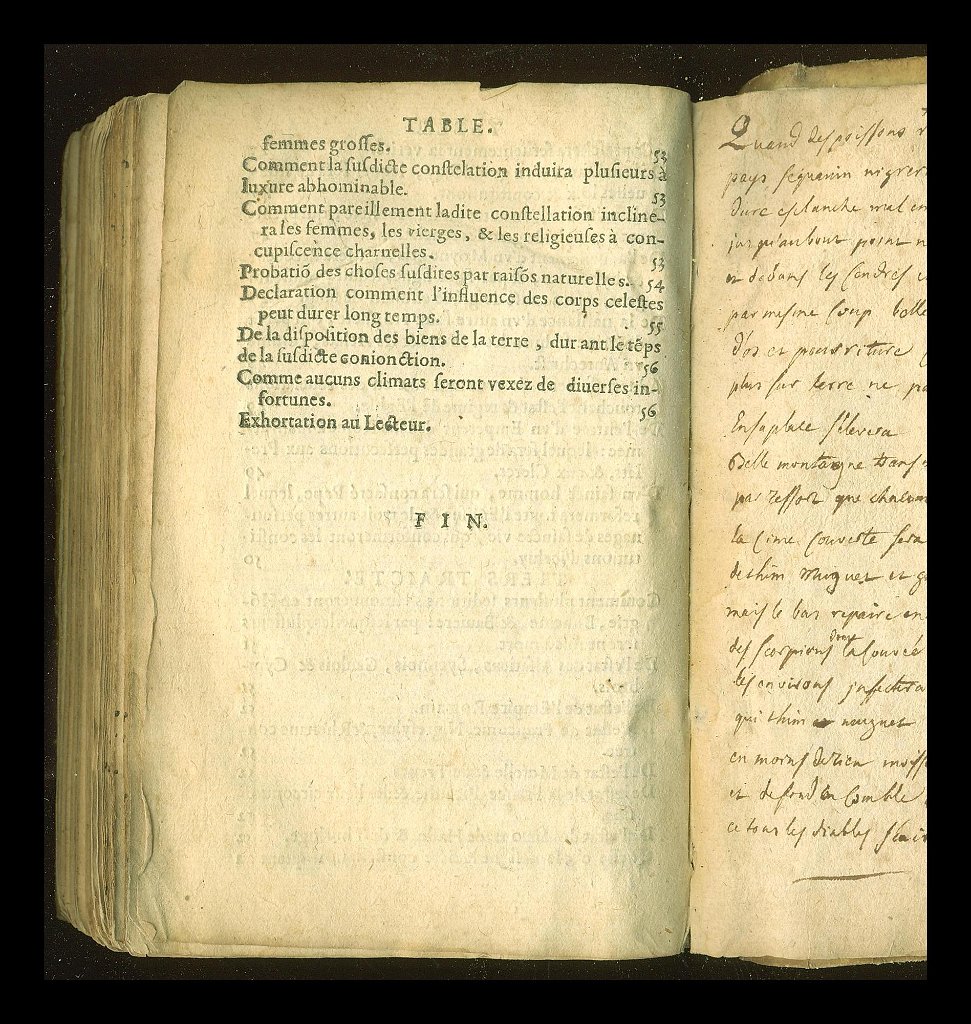 TABLE.
femmes grosses. 52
Comment la susdicte constelation induira plusieurs à
luxure abhominable. 53
Comment pareillement ladite constellation incline-
ra les femmes, les vierges, & les religieuses à con-
cupiscēce charnelles. 53
Probatiō des choses susdites par raisōs naturelles. 54
Declaration comment l'influence des corps celestes
peut durer long temps. 55
De la disposition des biens de la terre, durant le tēps
de la susdicte conionction. 56
Comme aucuns climats seront vexez de diuerses in-
fortunes. 56
Exhortation au Lecteur.
FIN.
Quand des poissons
pays sequanin
dure esclanche mal
jusqu'au bout point
et dedans les Cendres
par mesme Coup
d'os et pourriture
plus sur terre ne
En sa place s'elevera
Belle montaigne
par ressort que chacun
la Cime Couverte sera
de thim muguet et
mais le bas repaire
des scorpions dont la Couvée
les environs infectera
qui thim muguet
en moins de rien
et de fond en Comble
ce tour les diables